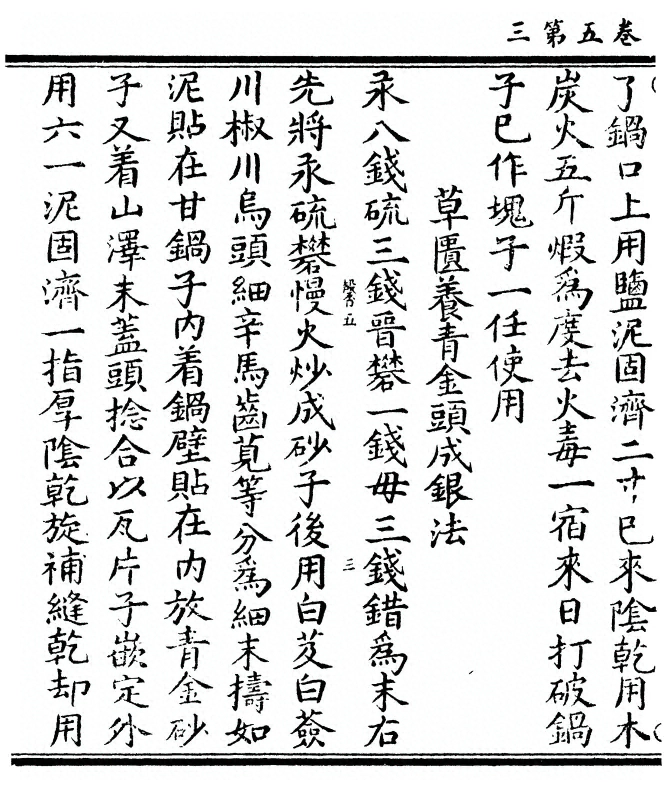 卷五第三
了鍋口上用鹽泥固濟二寸已來陰乾用木
炭火五斤煆爲度去火毒一宿來日打破鍋
子已作塊子一任使用
草匱養青金頭成銀法
汞八錢硫三錢晋礬一錢母三錢錯爲末右
三
先將汞硫礬慢火炒成砂子後用白芨白蘞
川椒川烏頭細辛馬齒莧等分爲細末擣如
泥貼在甘鍋子内着鍋壁貼在内放青金砂
子又着山澤末蓋頭捻合以瓦片子嵌定外
用六一泥固濟一指厚陰乾旋補縫乾却用